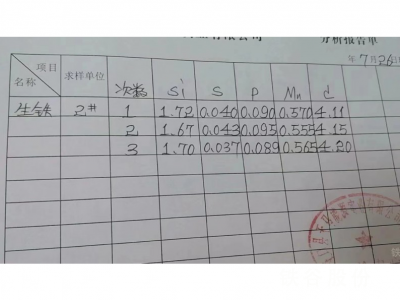 有限公司 分析报告单
年 7月26日
项目 名称 求样单位 次数 Si S P Mn C
生铁 2# 1 1.72 0.040 0.090 0.570 4.11
2 1.67 0.043 0.095 0.555 4.15
3 1.70 0.037 0.089 0.565 4.20